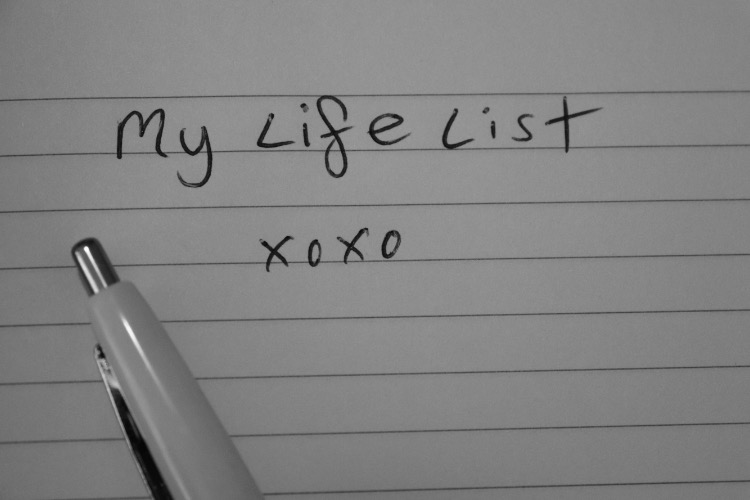 My Life List
xoxo